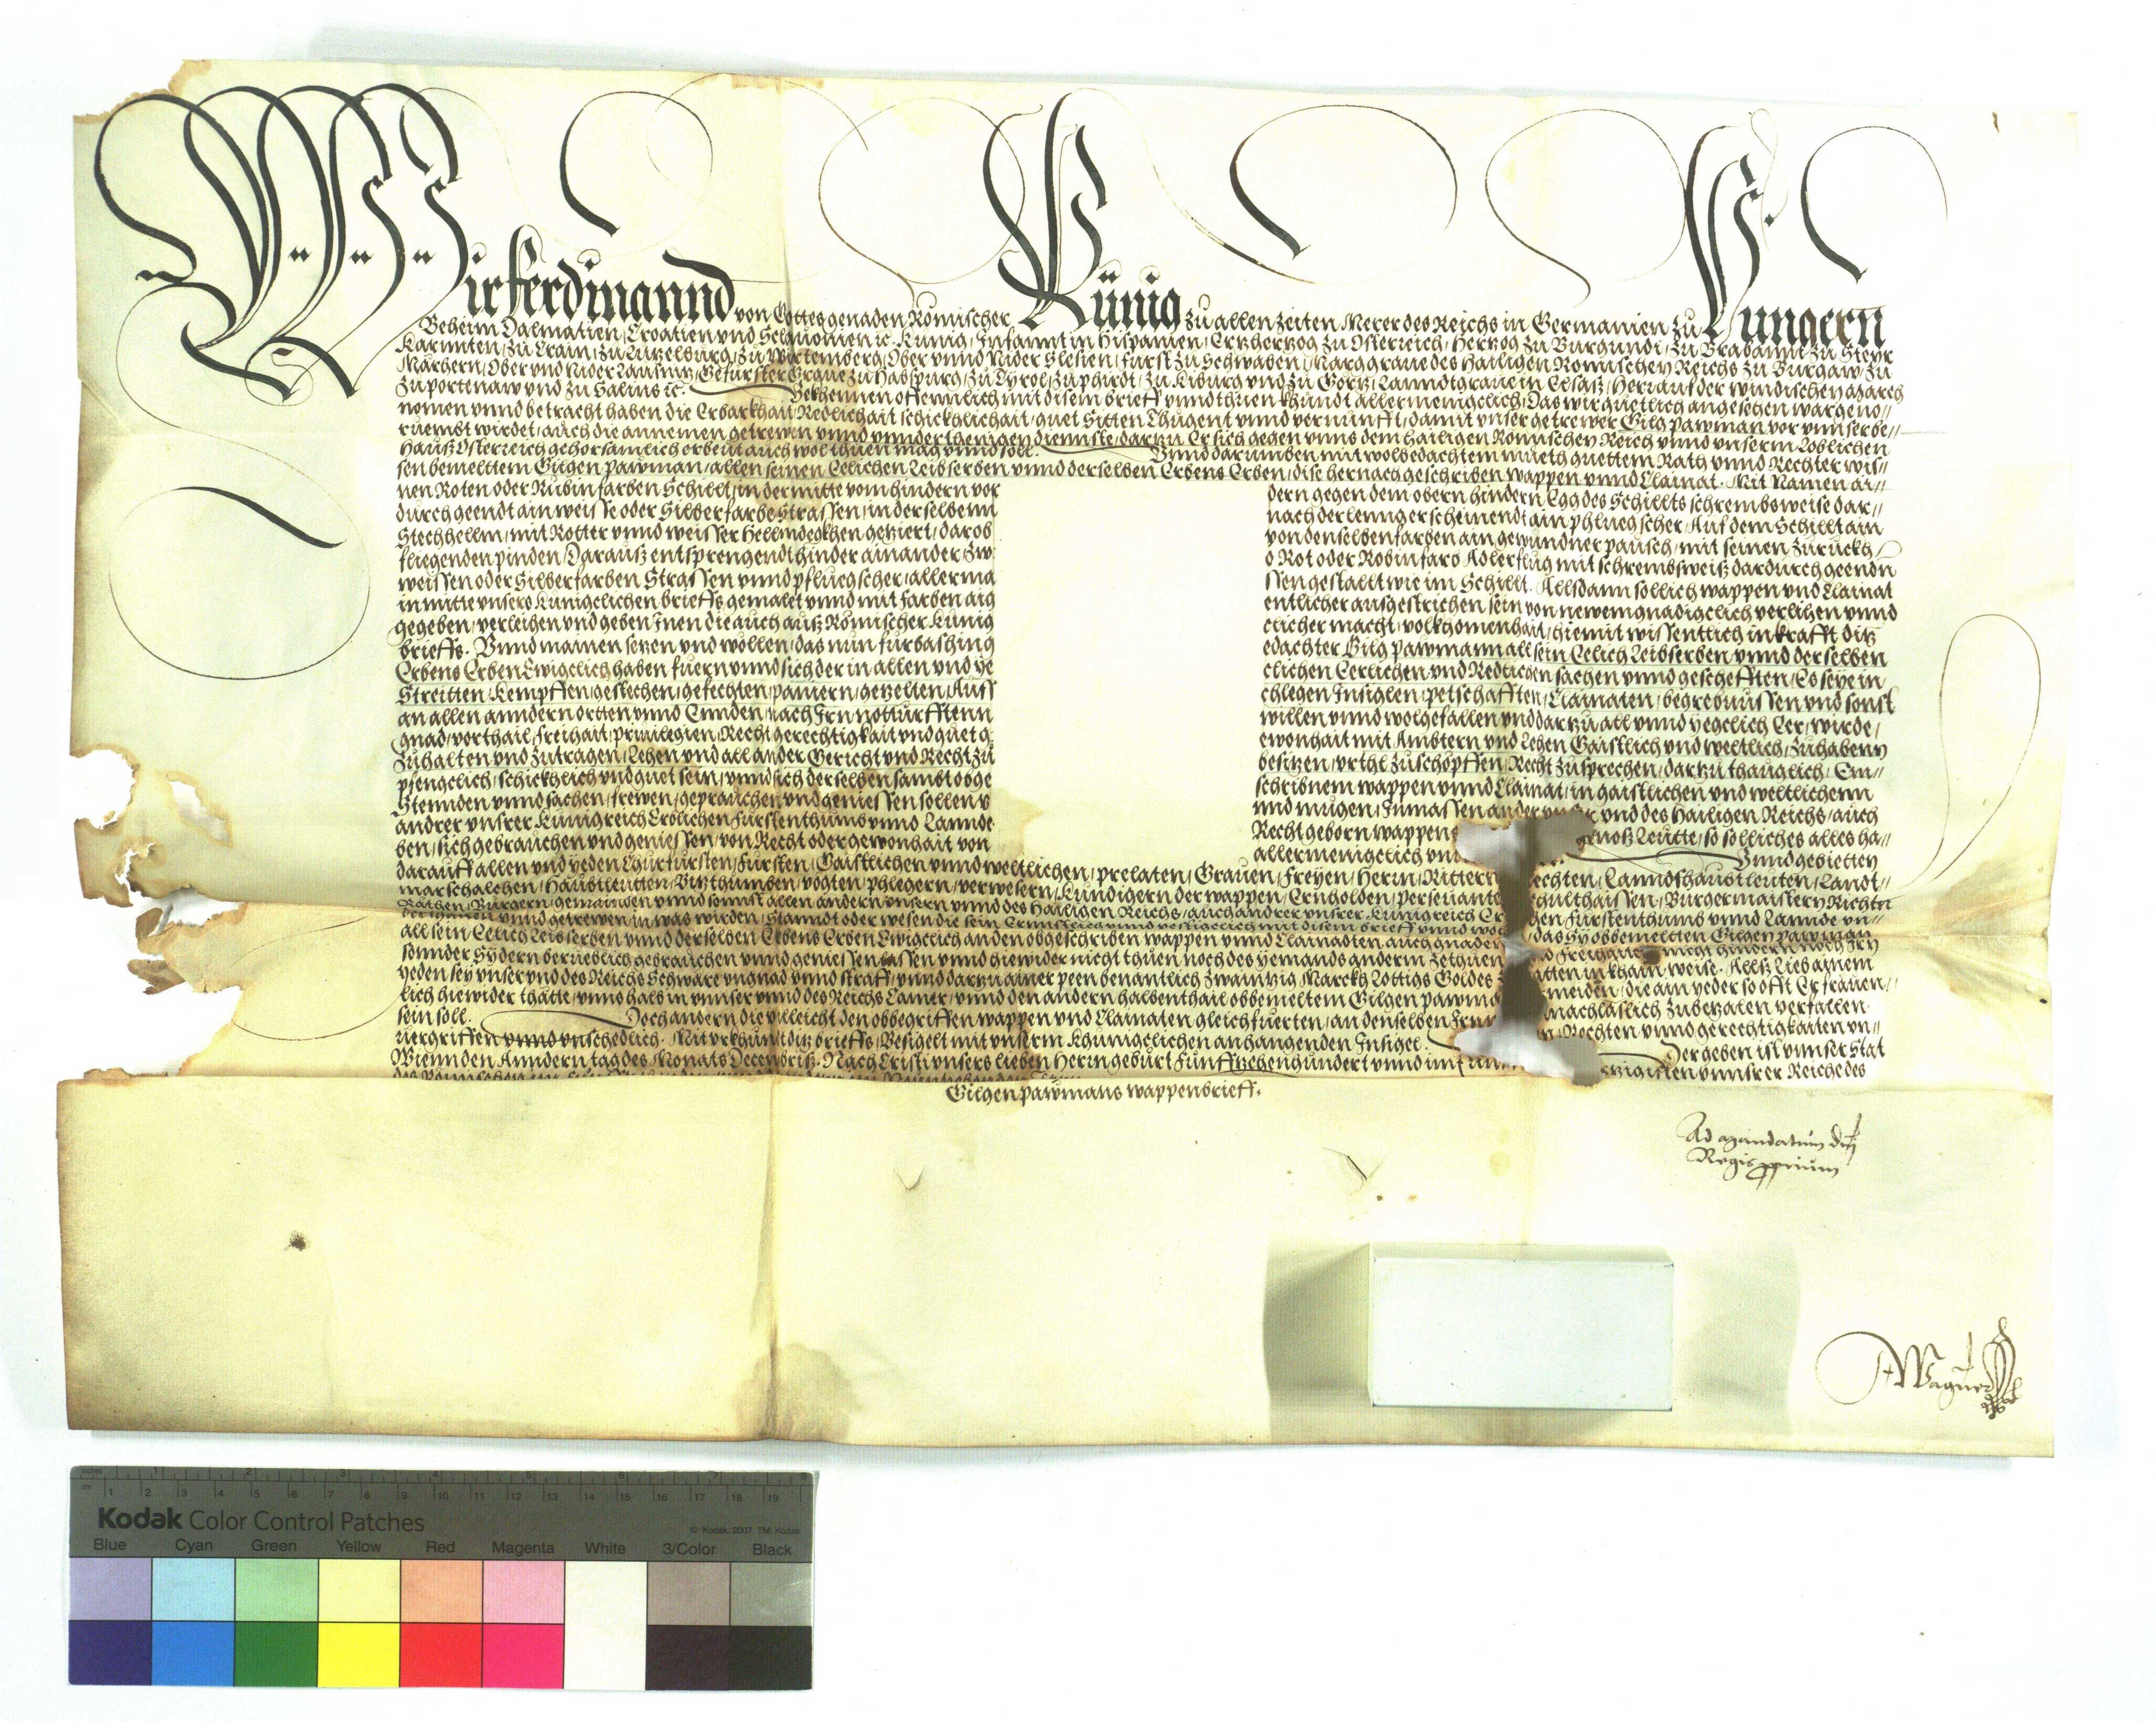 Wir Ferdinannd von Gottes genaden Römischer Künig zu allen Zeiten Merer des Reichs in Germanien zu Hungern
Beheim Dalmatien Croatien und Sclavonien ꝛc. Kunig, Infannt in Hispanien, Ertzhertzog zu Osterreich, Hertzog zu Burgundi, zu Brabannt zu Steyr
Karnnten, zu Crain, zu Lutzelburg, zu Wirtemberg, Ober vnnd Nider Slesien, Furst zu Schwaben, Marggraue des Hailigen Romischen Reichs zu Burgaw, zu
Märhern, Ober vnd Nider Lausnitz, Gefurster Graue zu Habspurg, zu Tyrol, zu phirdt, zu Kiburg vnd zu Görtz, Lanndtgraue in Elsass, Herr auf der Windischen March
zu portenaw vnd zu Salins ꝛc. Bekhennen offenntlich mit disem brieff vnnd thuen khundt allermenigclich, Das wir guetlich angesehen wargeno//
nomen vnnd betracht haben die Erbarkhait Redlichait schickhlichait, guet Sitten Thugent vnnd vernunfft, damit vnser getrewer Gilg pawman vor vnns be//
ruembt wirdet, auch die annemen getrewen vnnd vnnderthenigen diennste, dartzu Er sich gegen vnns dem Hailigen Römischen Reich vnnd vnserm Loblichen
Hauß Osterreich gehorsamlich erbeut auch wol thuen mag vnnd soll. Vnnd darumben mit wolbedachtem mueth guettem Rath vnnd Rechter wis//
sen bemelttem Gilgen pawman, allen seinen Eelichen Leibserben vnnd derselben Erbens Erben, dise hernachgeschriben wappen vnnd Clainat. Mit Namen ai//
nen Roten oder Rubinfarben Schillt, in der mitte vom hindern vor dern gegen dem obern hindern Egg des Schillts schrembsweise dar//
durch geendt ain weisse oder Silberfarbe Strassen, in derselbenn nach der lenng erscheinendt ain phluegscher, Auf dem Schillt ain
Stechhellm, mit Rotter vnnd weisser Hellmdeckhen getziert, darob von denselben farben ain gewundner pausch, mit seinen zuruckh
fliegenden pinden, Darauß entsprengendt hinder ainander zw: o Rot oder Robinfarb Adlerflug mit schrembsweiß dardurch geendn
weissen oder Silberfarben Strassen vnnd pfluegscher, allerma ssen gestallt wie im Schillt. Allsdann sollich wappen vnd Clainat
in mitte vnsers Kunigclichen brieffs gemalet vnnd mit farben aig entlicher ausgestrichen sein von newem gnadigclich verlihen vnnd
gegeben, verleihen vnd geben Inen die auch auß Römischer Kunig clicher macht, volkhomenhait, hiemit wissentlich in krafft ditz
brieffs. Vnnd mainen setzen vnd wöllen, das nun furbasshing edachter Gilg pawmann all sein Eelich Leibserben vnnd derselben
Erbens Erben Ewigclich haben fuern vnnd sich der in allen vnd ye clichen Eerlichen vnd Redlichen sachen vnnd geschefften, Es seye in
Streitten, Kempffen, gestechen, gefechten, paniern, getzelten, Auff chlegen Insiglen, petschafften, Clainaten, begrebnussen vnd sonst
an allen anndern ortten vnnd Ennden, nach Irn notturfftenn willen vnnd wolgefallen vnd dartzu all vnnd yegclich Eer, wirde,
gnad, vorthail, freihait, priuilegien, Recht gerechtigkait vnd guet g: ewonhait mit Ambtern vnd Lehen Gaistlich vnd weltlich, zuhabenn
zuhalten vnd zutragen, Lehen vnd all ander Gericht vnd Recht zu besitzen, vrthl zuschöpffen, Recht zusprechen, dartzu thauglich, Em//
pfengclich, schickhlich vnd guet sein, vnnd sich derselben sambt obge schribnem wappen vnnd Clainat, in gaistlichen vnd weltlichenn
Stennden vnnd sachen, frewen, geprauchen vnd geniessen sollen v nnd mugen, Inmassen ander vnd des Hailigen Reichs, auch
andrer vnsrer Kunigreich Erblichen Furstenthumb vnnd Lannde Recht geborn wappens noß Leutte, so solliches alles ha//
ben, sich gebrauchen vnd geniessen, von Recht oder gewonhait von allermenigclich vnu Vnnd gebietten
darauff allen vnd yeden Churfursten, Fursten, Gaistlichen vnnd weltlichen, prelaten, Grauen, Freyen, Herrn, Rittern echten, Lanndshaubtleuten, Landt//
marschalchen, Haubtleutten, Vitzthumben, vögten, phlegern, verwesern, Kundigern der wappen, Ernholden, perseuante chulthaissen, Burgermaistern Richtn
Räthen, Burgern, gemainden vnnd sonnst allen andern vnsern vnnd des Hailigen Reichs, auch andrer vnsrer Kunigreich Er hen, Furstenthumb vnnd Lannde vn//
vnnd getrewen in was wirden, Stanndt oder wesen die sein Ernnstlich vnnd vestigclich mit disem brieff vnnd wöl das Sy obbemellten Gilgen pawman
all sein Eelich Leibserben vnnd derselben Erbens Erben Ewigclich an den obgeschriben wappen vnnd Clainadten auch gnaden nicht hindern noch Irn
sonnder Sy dern berueblich gebrauchen vnnd geniessen lassen vnnd hiewider nicht thuen noch des yemands anderm zethuen atten in khain weise. Allß Lieb ainem
yeden sey vnser vnd des Reichs Schware vngnad vnnd straff, vnnd dartzu ainer peen benantlich zwaintzig Marckh Lottigs Goldes meiden, die ain yeder so offt Er frauen//
lich hiewider thatte, vnns halb in vnnser vnnd des Reichs Camer, vnnd den andern halben thail obbemeltem Gilgen pawma nachläslich zubetzalen verfallen
sein soll. Doch andern die villeicht den obbegriffen wappen vnd Clainaten gleich fuerten, an denselben Irnn n Rechten vnnd gerechtigkaiten vn//
uergriffen vnnd vnschedlich. Mit vrkhundt ditz brieffs, Besigelt mit vnserm Khunigclichen anhangenden Insigel. Der geben ist in vnnser Stat
Wienn den Anndern tag des Monats Decembris. Nach Cristi vnsers lieben Herrn geburt Funfftzehenhundert vnnd im tzigisten vnnsrer Reiche des
Gilgen pawmans wappenbrieff.
Ad mandatum dni
Regis pprium
Wagner
Kodak Color Control Patches
© Kodak, 2007 TM: Kodak
Blue Cyan Green Yellow Red Magenta White 3/Color Black